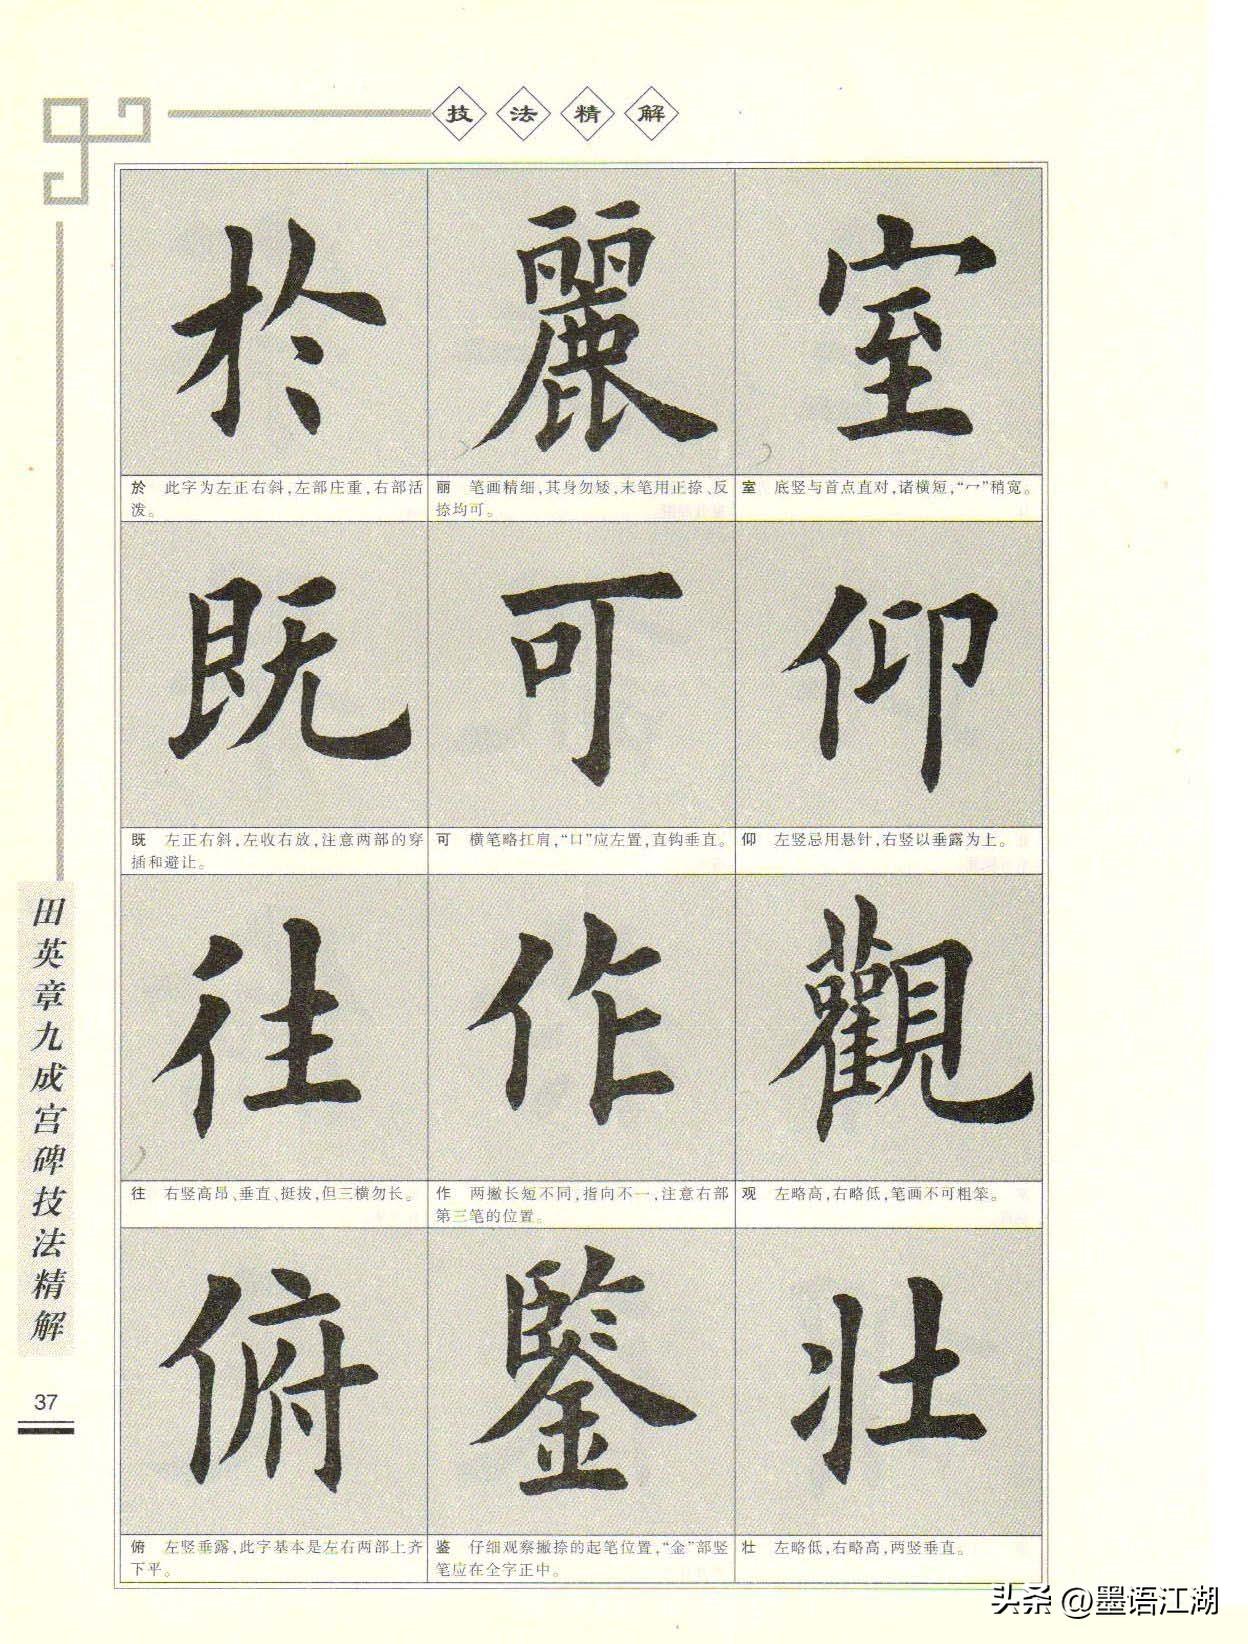 技法精解
於 麗 室
於 此字为左正右斜,左部庄重,右部活
泼。
丽 笔画精细,其身勿矮,末笔用正捺、反
捺均可。
室 底竖与首点直对,诸横短,“冖”稍宽。
既 可 仰
既 左正右斜,左收右放,注意两部的穿
插和避让。
可 横笔略扛肩,“口”应左置,直钩垂直。
仰 左竖忌用悬针,右竖以垂露为上。
往 作 觀
往 右竖高昂、垂直、挺拔,但三横勿长。
作 两撇长短不同,指向不一,注意右部
第三笔的位置。
观 左略高,右略低,笔画不可粗笨。
俯 鋻 壮
俯 左竖垂露,此字基本是左右两部上齐
下平。
鉴 仔细观察撇捺的起笔位置,“金”部竖
笔应在全字正中。
壮 左略低,右略高,两竖垂直。
田英章九成宫碑技法精解
37
头条 @墨语江湖